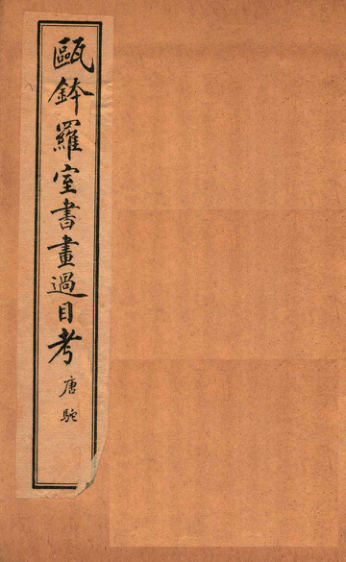 甌鉢羅室書畫過目考
唐駝